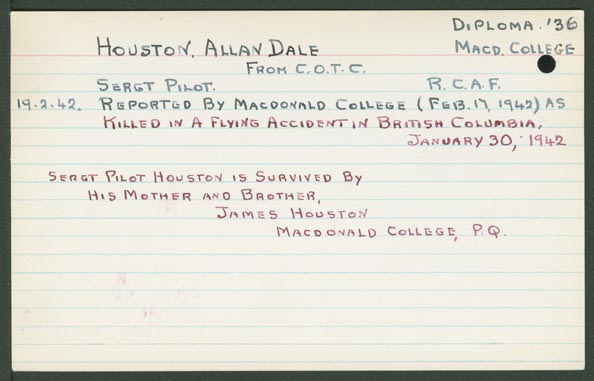 DIPLOMA. '36
HOUSTON, ALLAN DALE MACD. COLLEGE
FROM C.O.T.C.
SERGT PILOT. R.C.A.F.
19.2.42. REPORTED BY MACDONALD COLLEGE (FEB. 17, 1942) AS
KILLED IN A FLYING ACCIDENT IN BRITISH COLUMBIA,
JANUARY 30, 1942
SERGT PILOT HOUSTON IS SURVIVED BY
HIS MOTHER AND BROTHER,
JAMES HOUSTON
MACDONALD COLLEGE, P.Q.